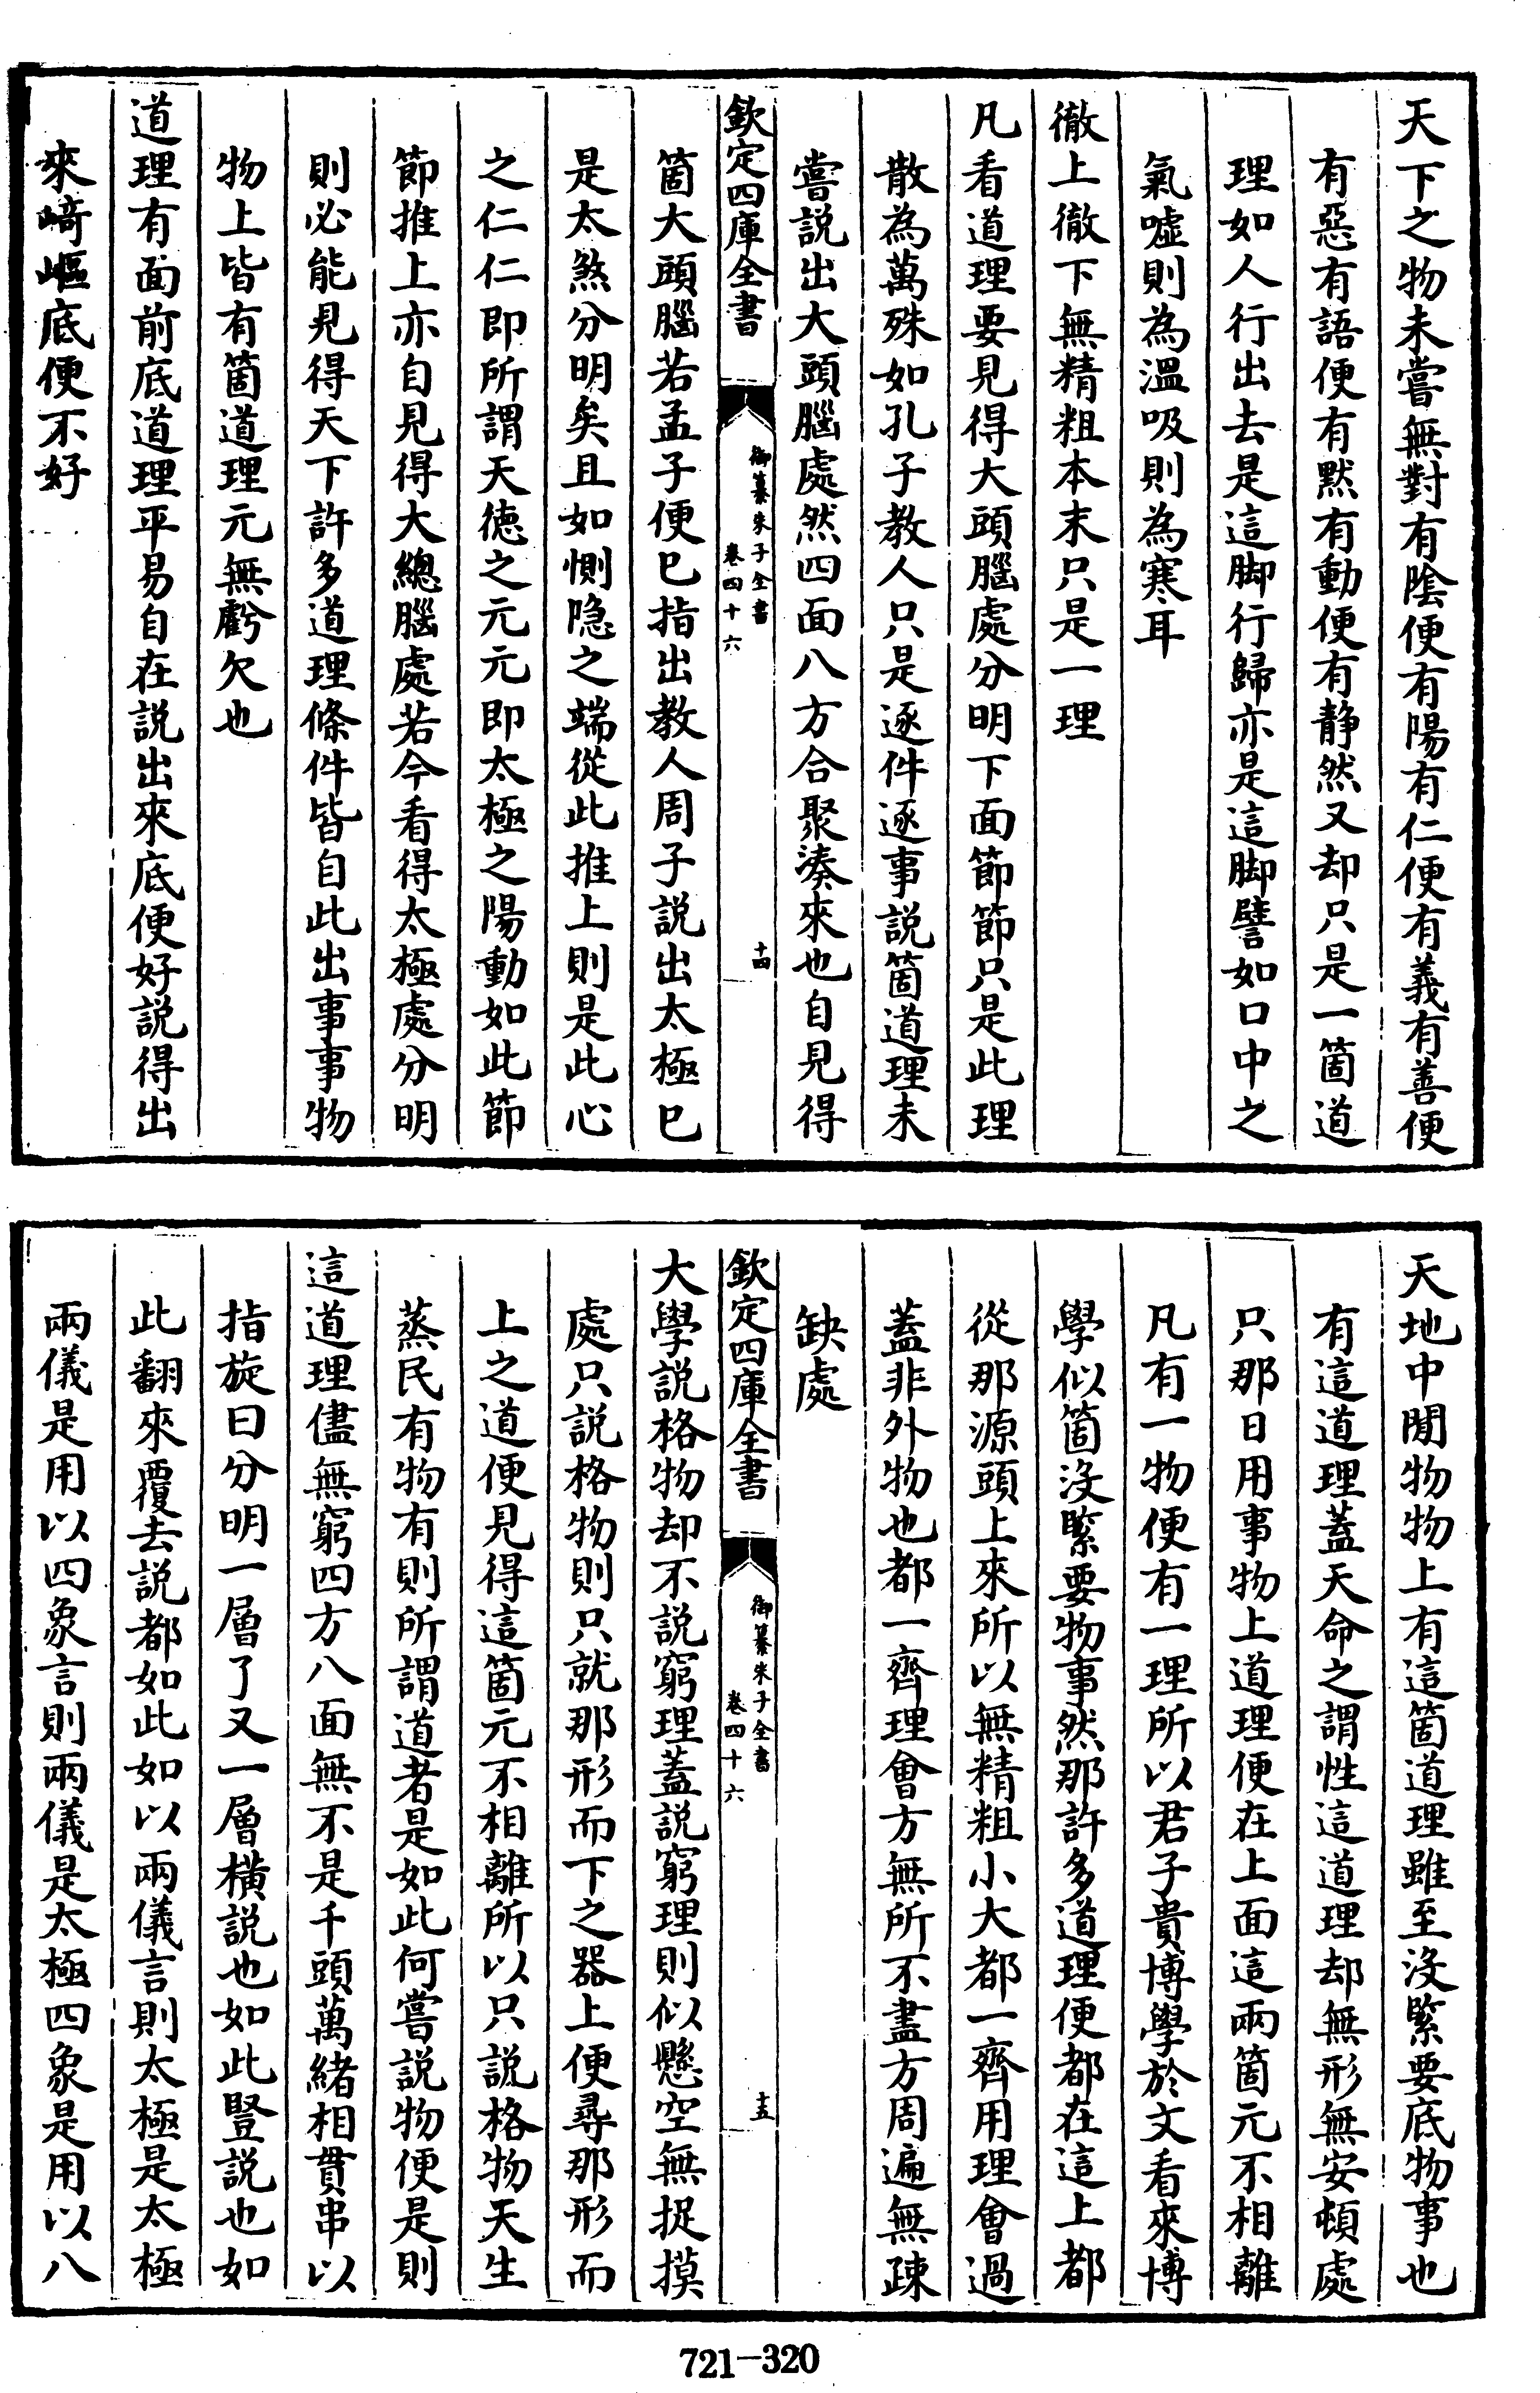 天下之物未嘗無對有陰便有陽有仁便有義有善便
有惡有語便有默有動便有静然又却只是一箇道
理如人行出去是這脚行歸亦是這脚譬如口中之
氣嘘則為溫吸則為寒耳
徹上徹下無精粗本末只是一理
凡看道理要見得大頭腦處分明下面節節只是此理
散為萬殊如孔子教人只是逐件逐事説箇道理未
嘗説出大頭腦處然四面八方合聚湊來也自見得
欽定四庫全書
御纂朱子全書
卷四十六
十四
箇大頭腦若孟子便已指出教人周子説出太極已
是太煞分明矣且如惻隐之端從此推上則是此心
之仁仁即所謂天德之元元即太極之陽動如此節
節推上亦自見得大總腦處若今看得太極處分明
則必能見得天下許多道理條件皆自此出事事物
物上皆有箇道理元無虧欠也
道理有面前底道理平易自在説出來底便好説得出
來崎嶇底便不好
天地中間物物上有這箇道理雖至沒緊要底物事也
有這道理蓋天命之謂性這道理却無形無安頓處
只那日用事物上道理便在上面這兩箇元不相離
凡有一物便有一理所以君子貴博學於文看來博
學似箇沒緊要物事然那許多道理便都在這上都
從那源頭上來所以無精粗小大都一齊用理會過
蓋非外物也都一齊理會方無所不盡方周遍無疎
缺處
欽定四庫全書
御纂朱子全書
卷四十六
十五
大學説格物却不説窮理蓋説窮理則似懸空無捉摸
處只説格物則只就那形而下之器上便尋那形而
上之道便見得這箇元不相離所以只説格物天生
蒸民有物有則所謂道者是如此何嘗説物便是則
這道理儘無窮四方八面無不是千頭萬緒相貫串以
指旋曰分明一層了又一層横説也如此豎説也如
此翻來覆去説都如此如以兩儀言則太極是太極
兩儀是用以四象言則兩儀是太極四象是用以八
721-320